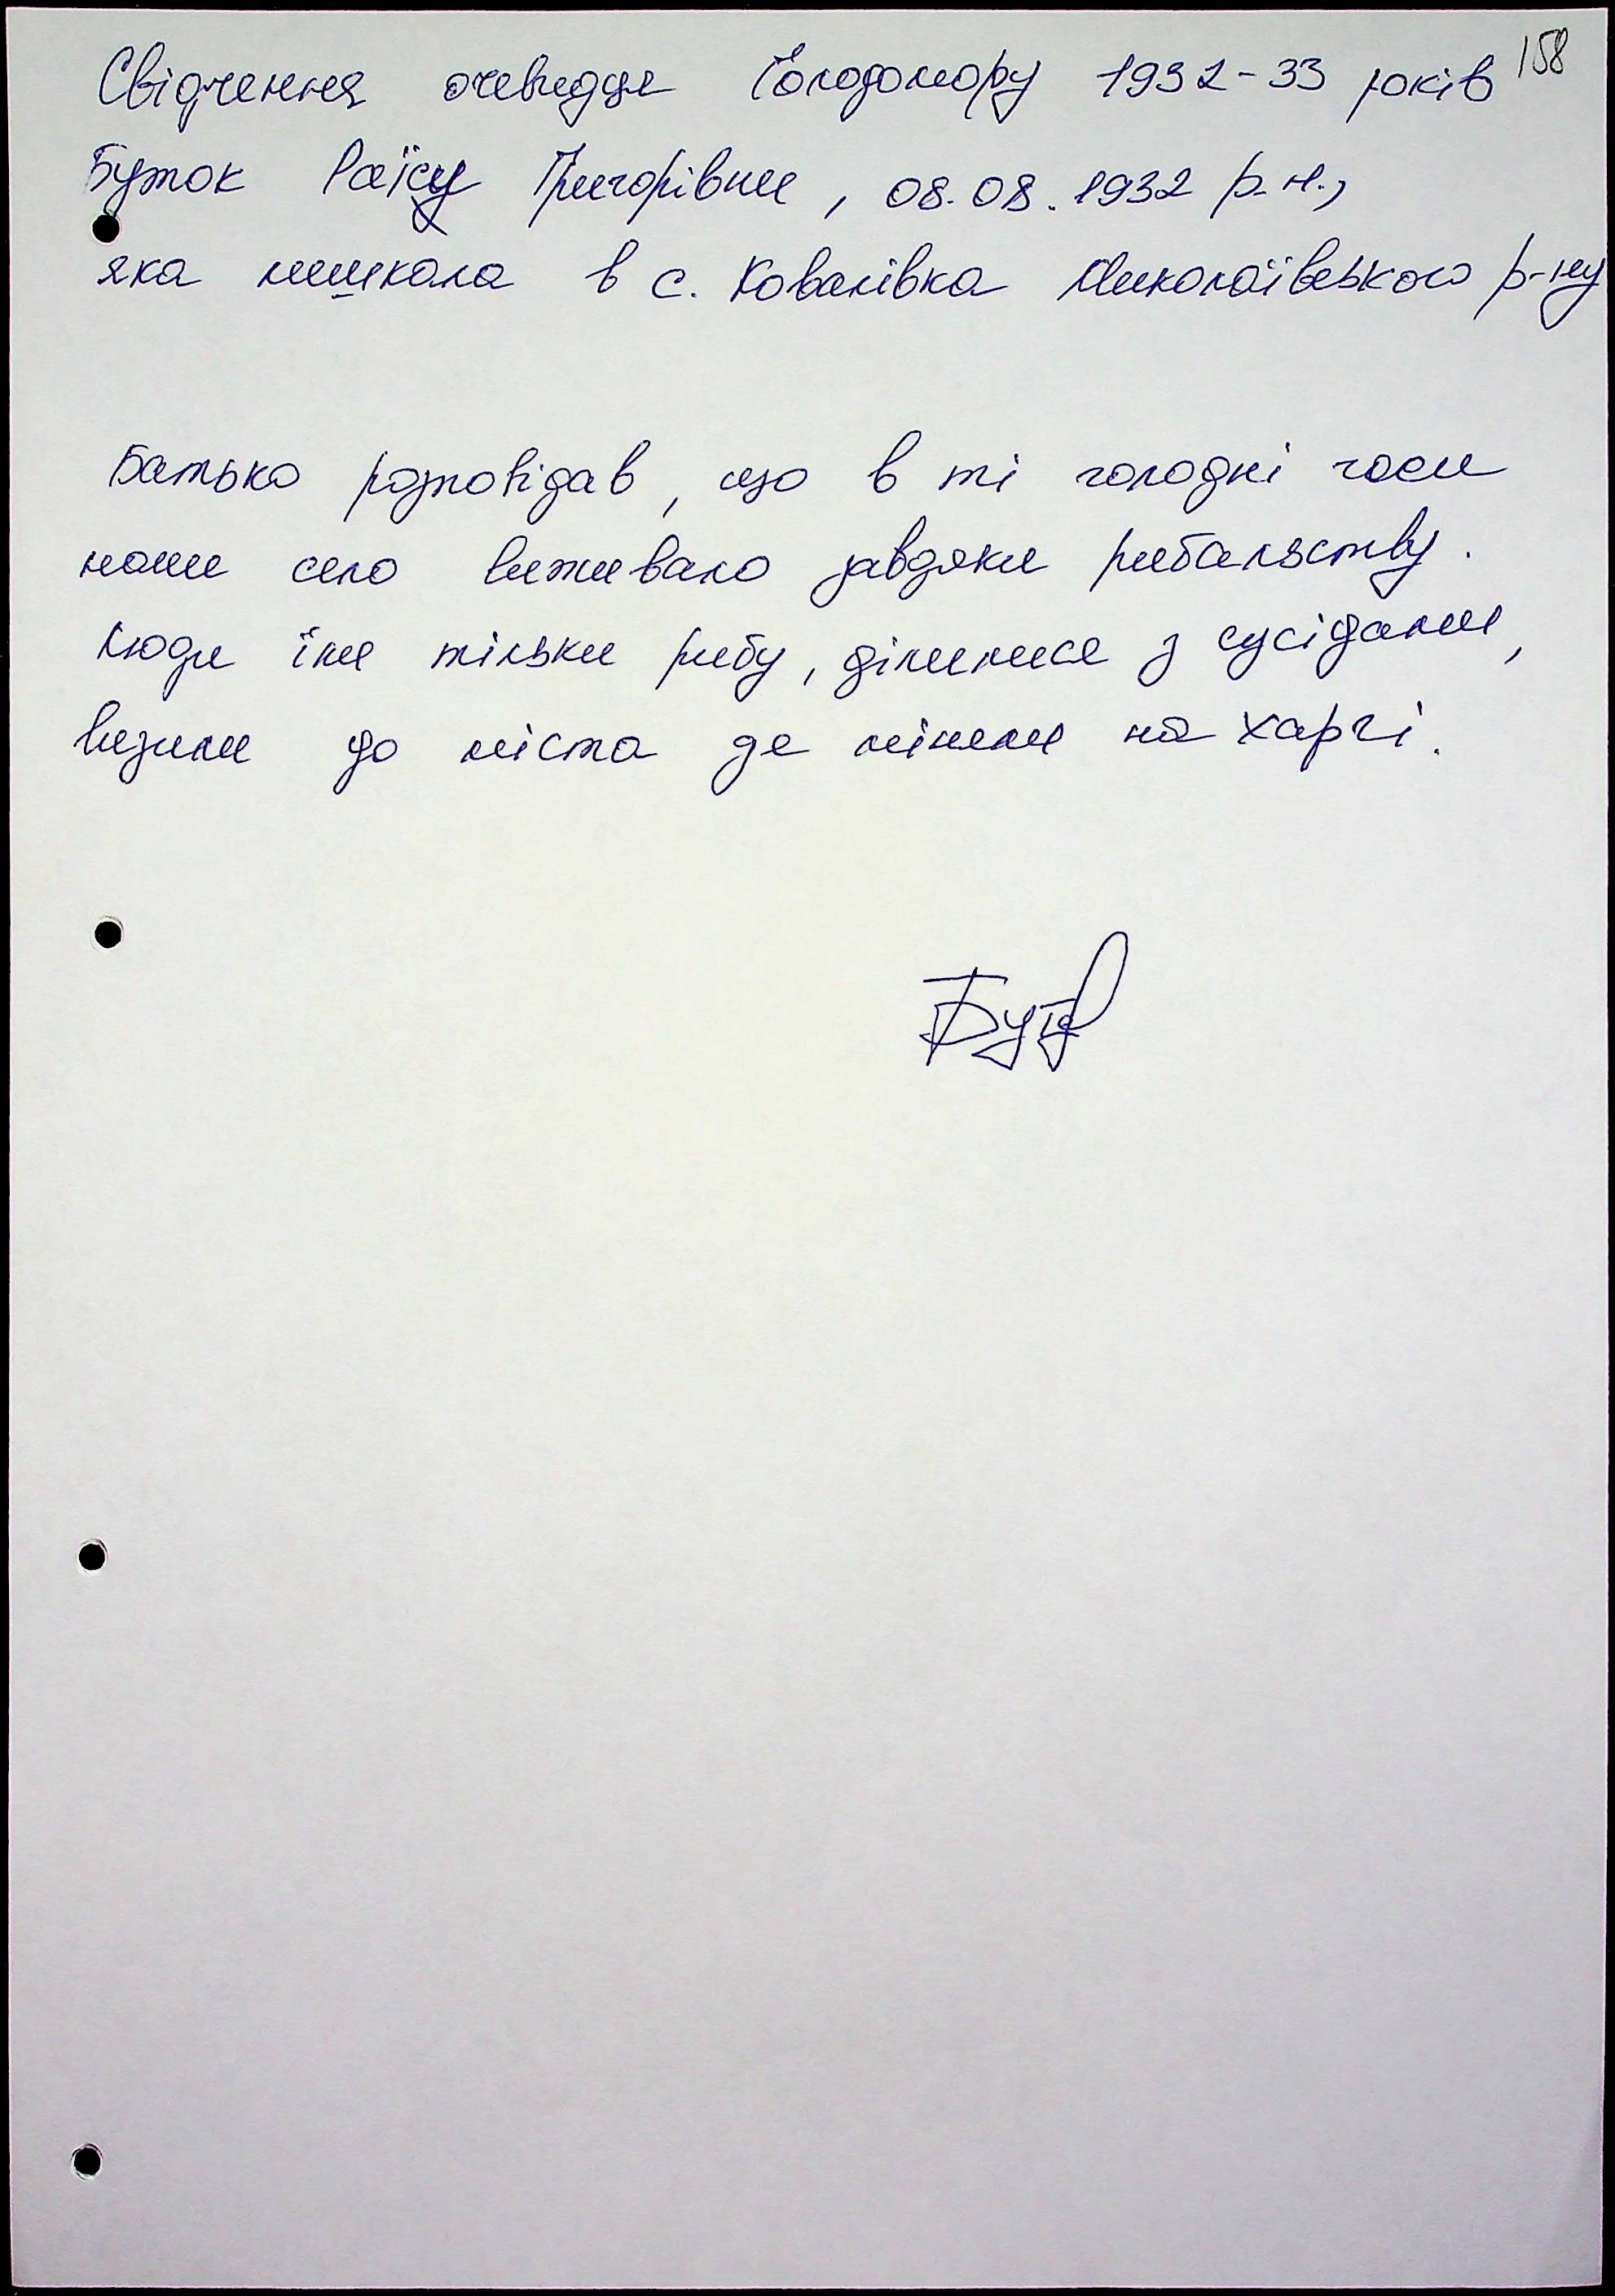 158
Свідчення очевидця Голодомору 1932-33 років
Буток Раїсу Григорівни, 08.08.1932 р.н.,
яка мешкала в с. Ковалівка Миколаївського р-ну
Батько розповідав, що в ті голодні часи
наше село виживало завдяки рибальству.
Люди їли тільки рибу, ділилися з сусідами,
визили до міста де міняли на харчі.